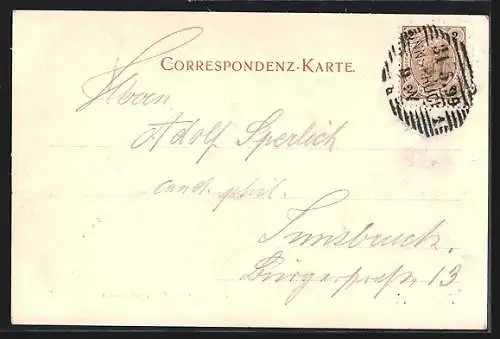 CORRESPONDENZ-KARTE.
Herrn
Adolf Sperlich
cand. phil.
Innsbruck.
Bürgerstraße 13
2
INNSBRUCK
31 5 99